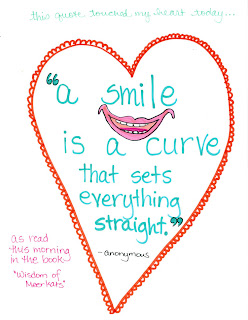 this quote touched my heart today...
"a smile
is a curve
that sets
everything
straight."
- anonymous
as read
this morning
in the book
"Wisdom of
Meerkats"